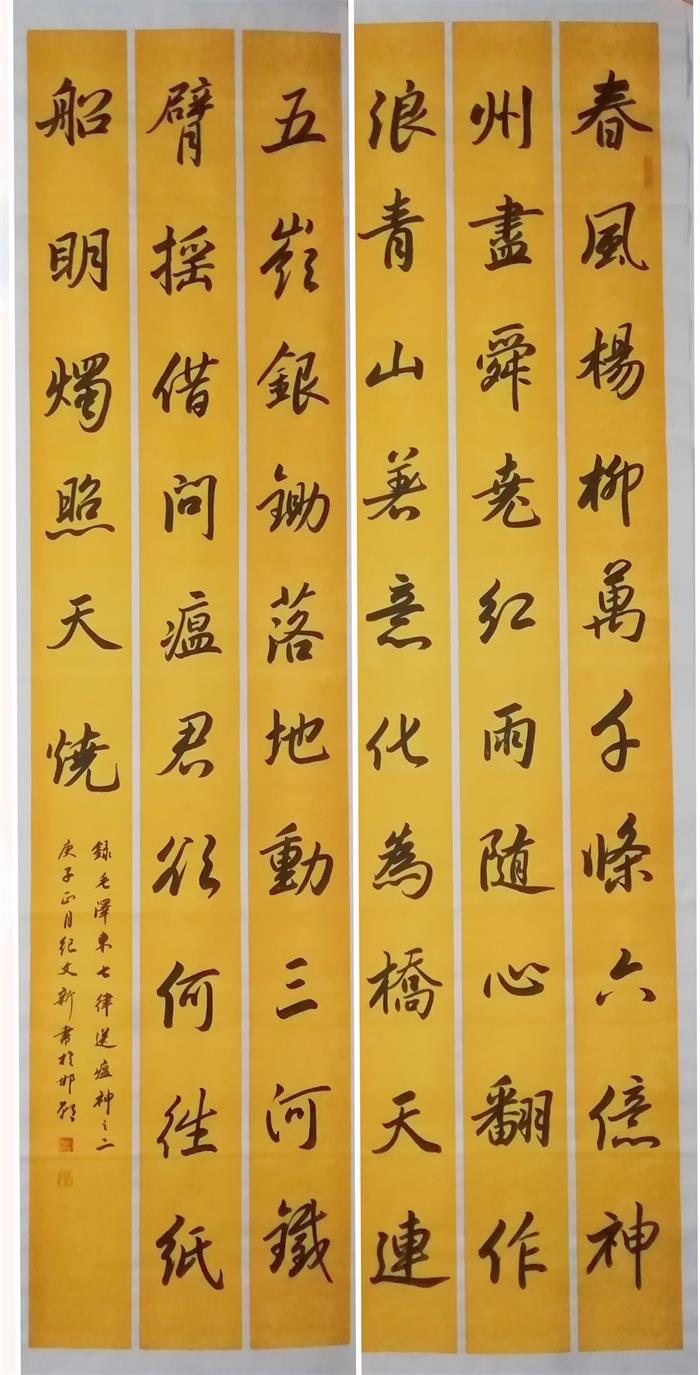 春風楊柳萬千條六億神
州盡舜堯紅雨随心翻作
浪青山著意化為橋天連
五嶺銀鋤落地動三河鐵
臂摇借問瘟君欲何往紙
船明燭照天燒
録毛澤東七律送瘟神之二
庚子正月紀文新書於邯鄲